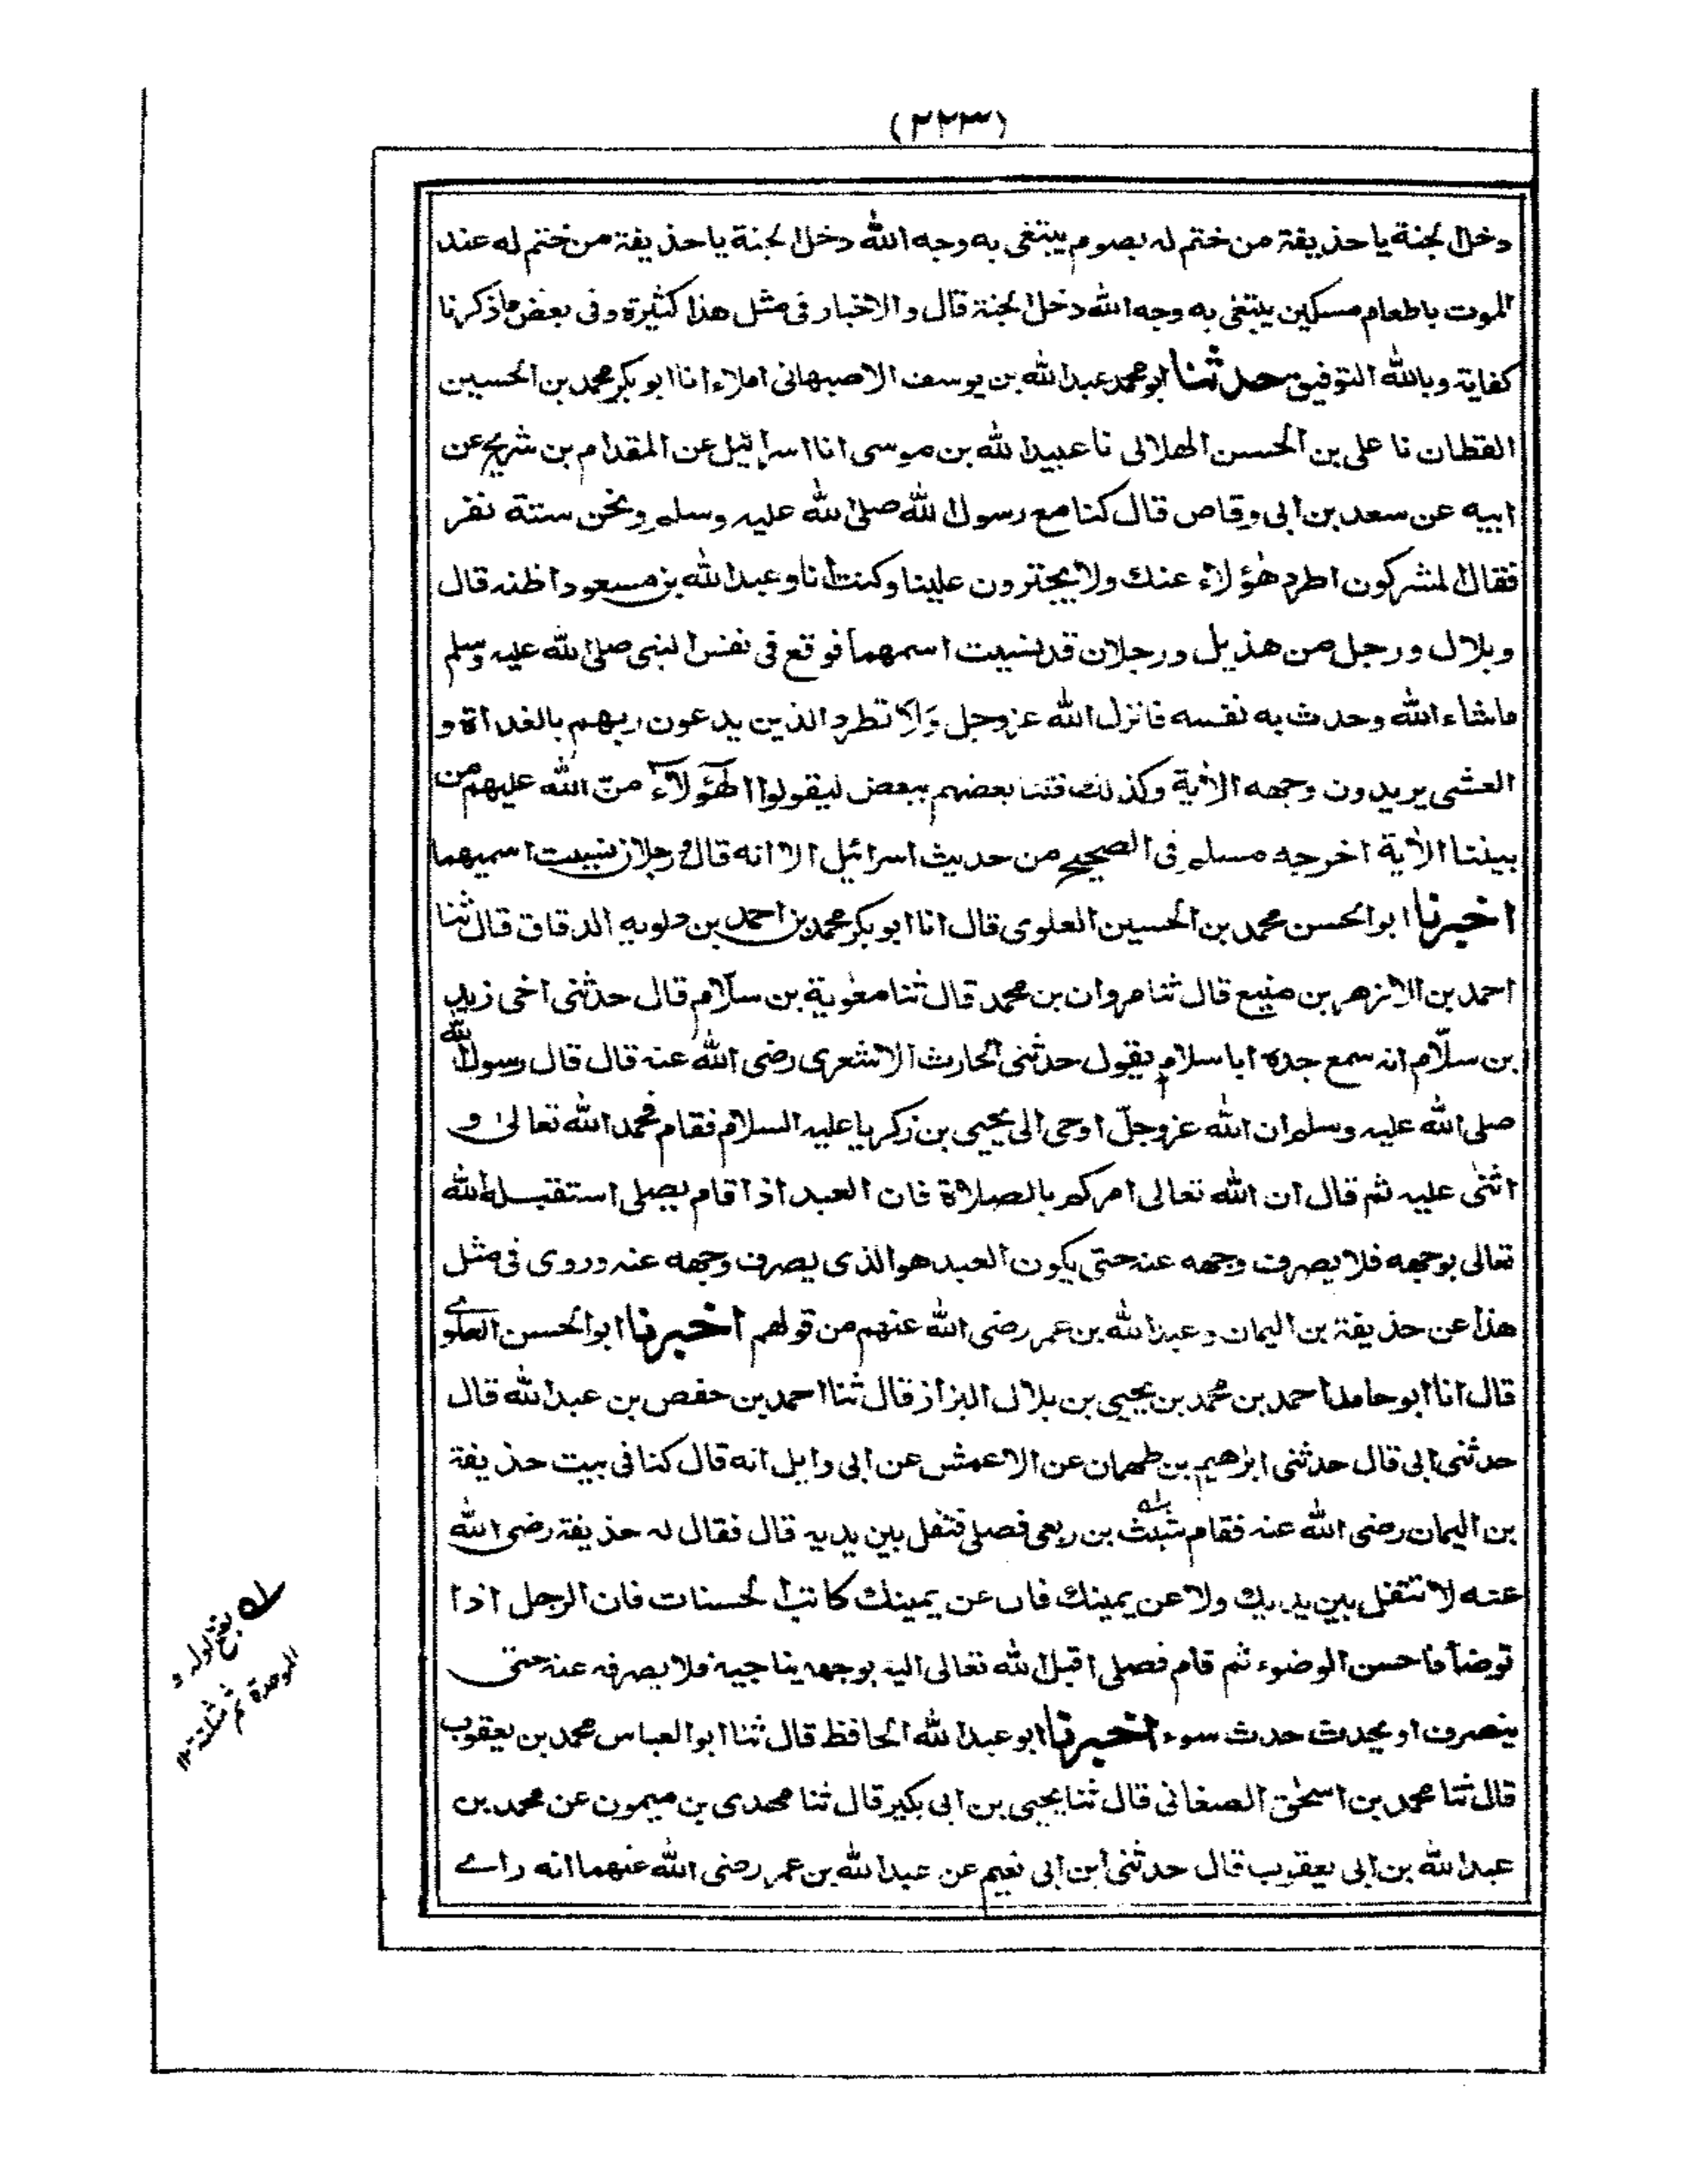 (٢٢٣)
دخل الجنة يا حذيفة من ختم له بصوم يبتغى به وجه الله دخل الجنة يا حذيفة من ختم له عند
الموت باطعام مسكين يبتغى به وجه الله دخل الجنة قال والاخبار فى مثل هذا كثيرة وفى بعض ما ذكرنا
كفاية وبالله التوفيق حدثنا ابو محمد عبد الله بن يوسف الاصبهانى املاء انا ابو بكر محمد بن الحسين
القطان نا على بن الحسن الهلالى نا عبيد الله بن موسى انا اسرائيل عن المقدام بن شريح عن
ابيه عن سعد بن ابى وقاص قال كنا مع رسول الله صلى الله عليه وسلم ونحن ستة نفر
فقال المشركون اطرد هؤلاء عنك ولا يجترون علينا وكنت انا وعبد الله بن مسعود اظنه قال
وبلال ورجل من هذيل ورجلان قد نسيت اسمهما فوقع فى نفس النبى صلى الله عليه وسلم
ماشاء الله وحدث به نفسه فانزل الله عزوجل وَلا تطرد الذين يدعون ربهم بالغداة و
العشى يريدون وجهه الأية وكذلك فتنا بعضهم ببعض ليقولوا اهٰؤلآء منّ الله عليهم من
بيننا الأية اخرجه مسلم فى الصحيح من حديث اسرائيل الا انه قال ورجلان نسيت اسميهما
اخبرنا ابو الحسن محمد بن الحسين العلوى قال انا ابو بكر محمد بن احمد بن دلويه الدقاق قال ثنا
احمد بن الازهر بن منيع قال ثنا مروان بن محمد قال ثنا معٰوية بن سلّام قال حدثنى اخى زيد
بن سلّام انه سمع جده ابا سلام يقول حدثنى الحارث الاشعرى رضى الله عنه قال قال رسول الله
صلى الله عليه وسلم ان الله عزوجلّ اوحى الى يحيى بن زكريا عليه السلام فقام فحمد الله تعالىٰ و
اثنٰى عليه ثم قال ان الله تعالى امركم بالصلاة فان العبد اذا قام يصلى استقبله الله
تعالى بوجهه فلا يصرف وجهه عنه حتى يكون العبد هو الذى يصرف وجهه عنه وروى فى مثل
هذا عن حذيفة بن اليمان وعبد الله بن عمر رضى الله عنهم من قولهم اخبرنا ابو الحسن العلوے
قال انا ابو حامد احمد بن محمد بن يحيى بن بلال البزاز قال ثنا احمد بن حفص بن عبد الله قال
حدثنى ابى قال حدثنى ابرٰهيم بن طهمان عن الاعمش عن ابى وايل انه قال كنا فى بيت حذيفة
بن اليمان رضى الله عنه فقام شبث بن ربعى فصلى فتفل بين يديه قال فقال له حذيفة رضى الله
عنه لا تتفل بين يديك ولا عن يمينك فان عن يمينك كاتب الحسنات فان الرجل اذا
توضأ فاحسن الوضوء ثم قام فصلى اقبل الله تعالى اليه بوجهه يناجيه فلا يصرفه عنه حتى
ينصرف او يحدث حدث سوء اخبرنا ابو عبد الله الحافظ قال ثنا ابو العباس محمد بن يعقوب
قال ثنا محمد بن اسحٰق الصغانى قال ثنا يحيى بن ابى بكير قال ثنا مهدى بن ميمون عن محمد بن
عبد الله بن ابى يعقوب قال حدثنى ابن ابى نعيم عن عبد الله بن عمر رضى الله عنهما انه راے
له بفتح اوله و
الموحدة ثم مثلثة ١٢